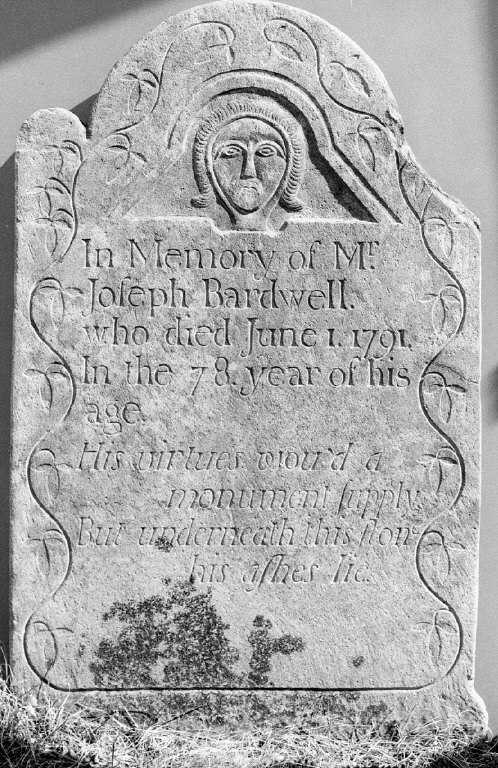 In Memory of Mr.
Joſeph Bardwell.
who died June 1. 1791.
In the 78. year of his
age.
His virtues wou'd a
monument ſupply.
But underneath this ſton
his aſhes lie.